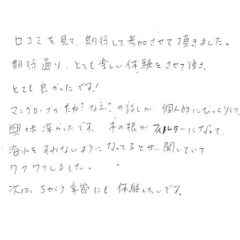 口コミを見て、期待して参加させて頂きました。
期待通り、とても楽しい体験をさせて頂き、
とても良かったです!
マングローブの たね?なえ?の話しが 個人的にびっくりして、
興味深かったです。木の根が フィルターになって、
海水をすわないようになってるとか、聞していて
ワクワクしました。
次は、ちがう季節にも 体験したいです。